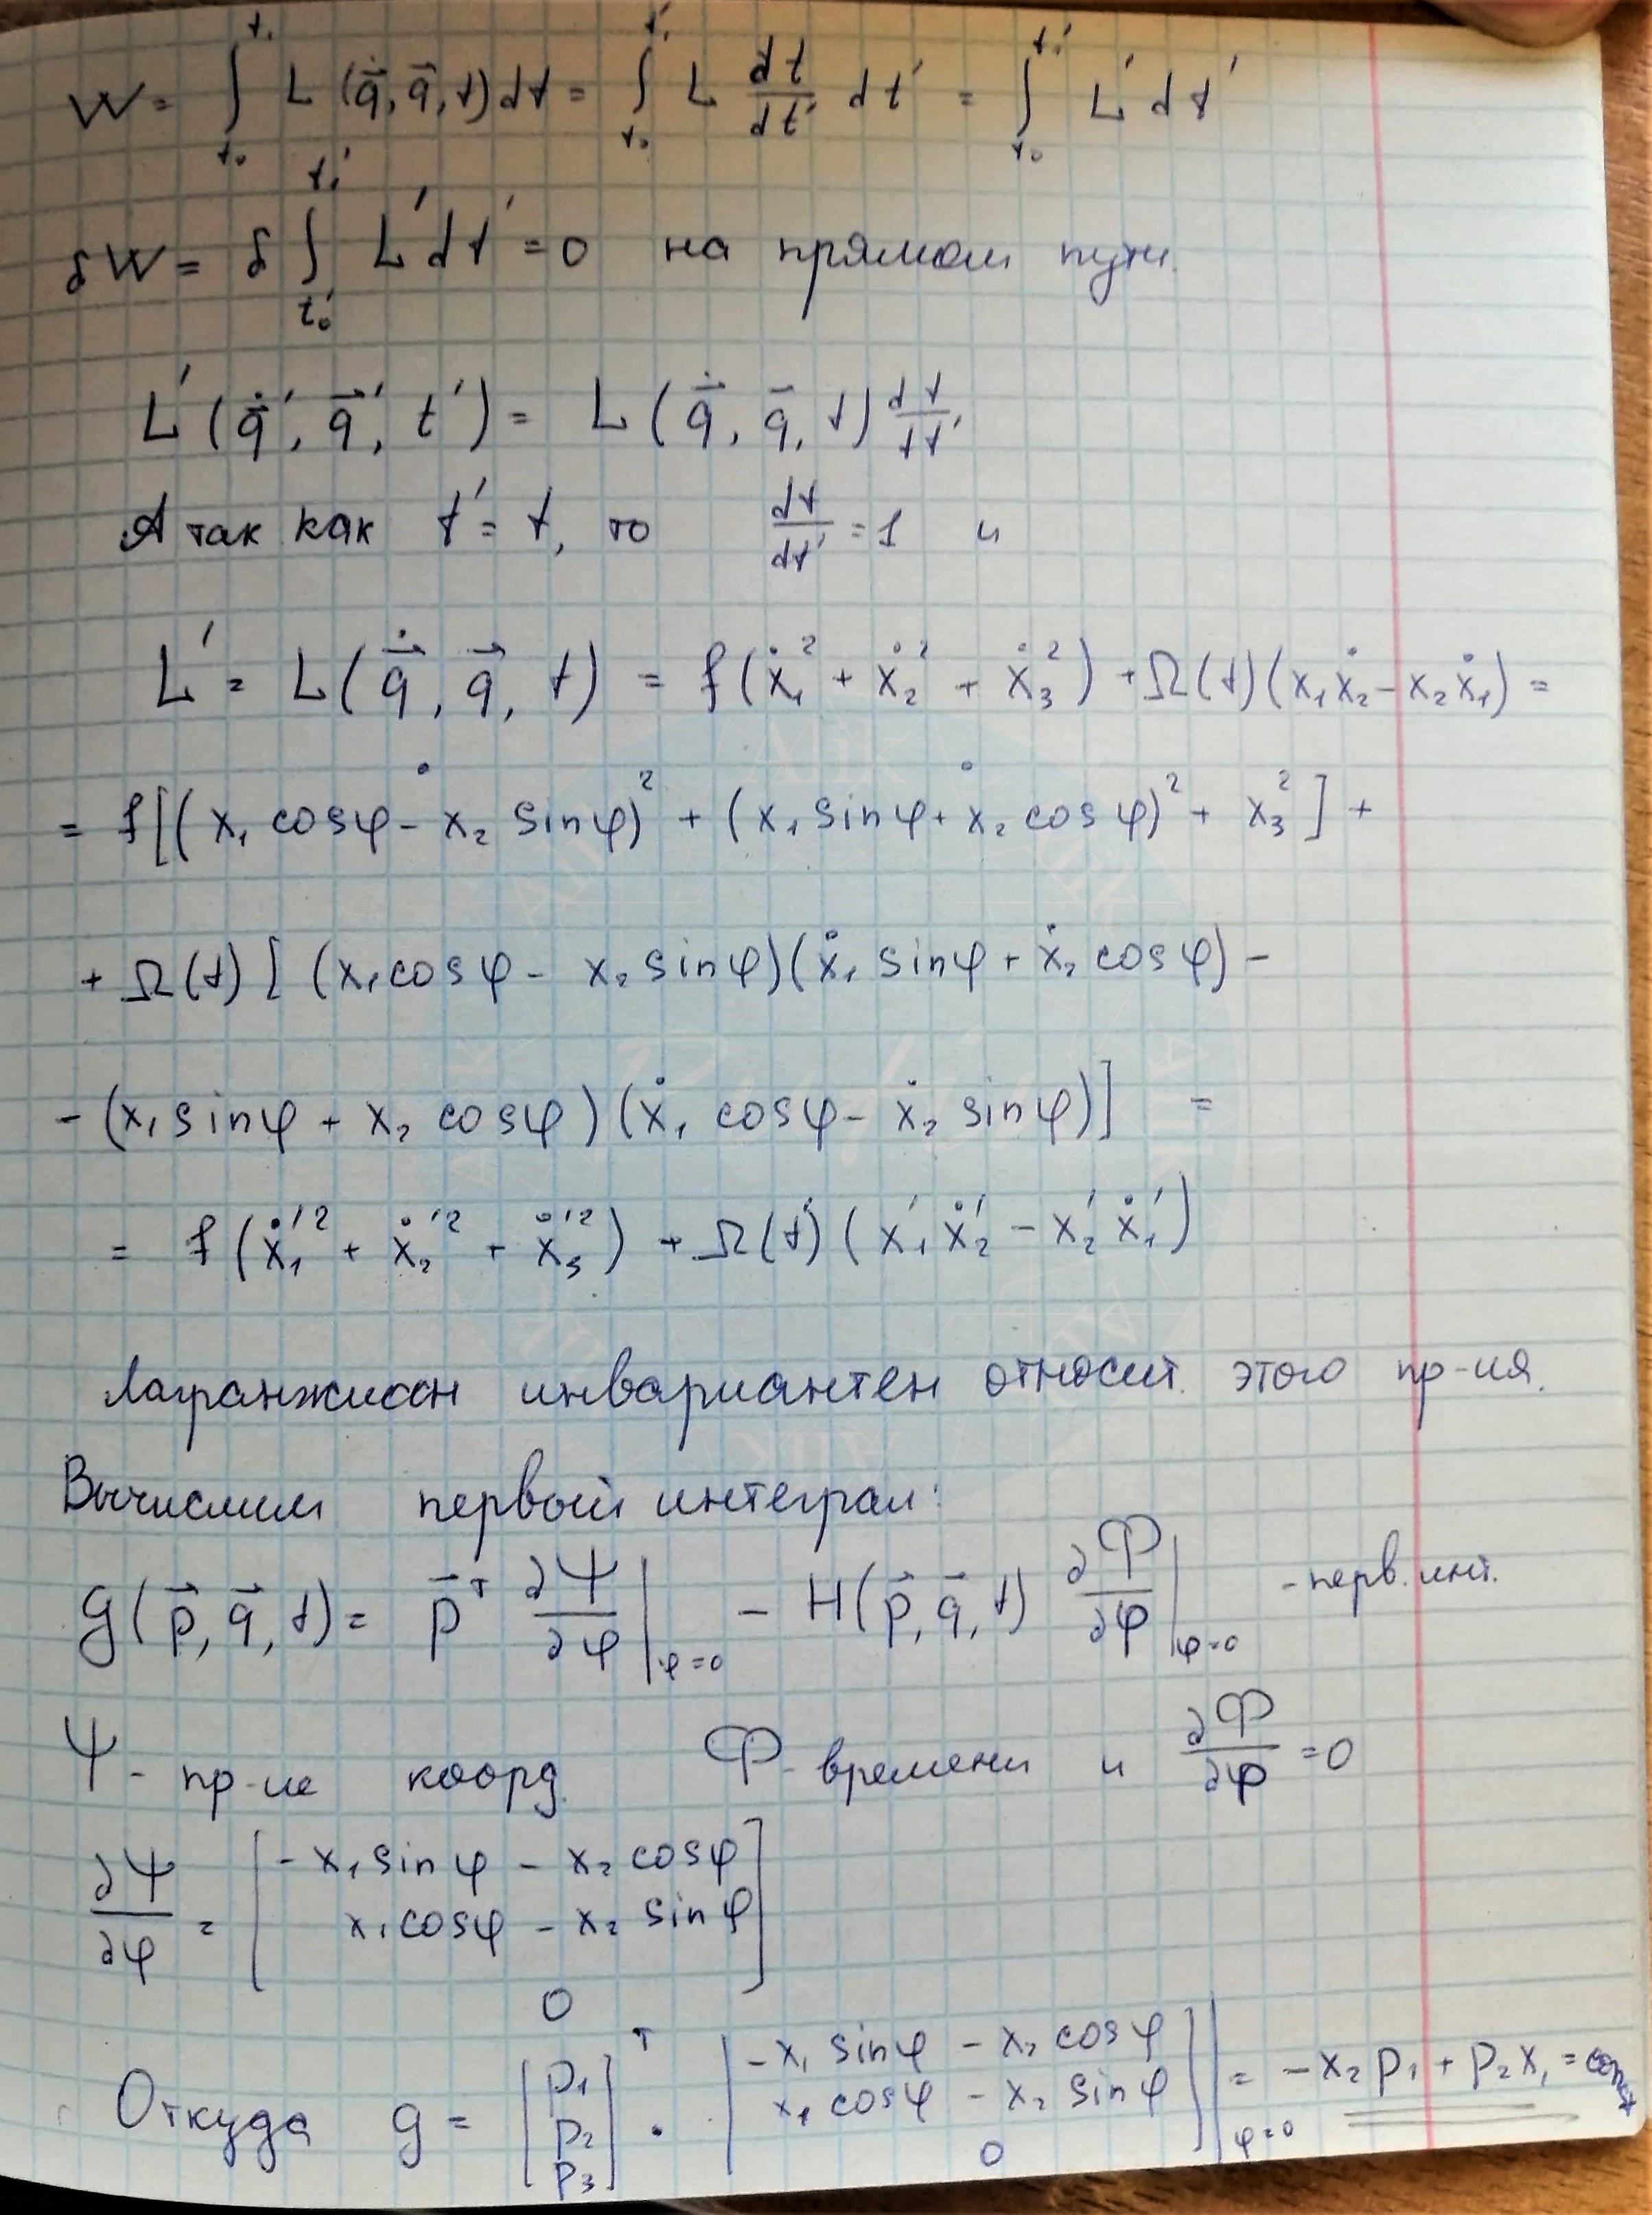 W = ∫_{t₀}^{t₁} L (q̇⃗, q⃗, t) dt = ∫_{t₀'}^{t₁'} L dt/dt' dt' = ∫_{t₀'}^{t₁'} L' dt'
δW = δ ∫_{t₀'}^{t₁'} L' dt' = 0 на прямом пути.
L' (q̇⃗', q⃗', t') = L (q̇⃗, q⃗, t) dt/dt'
А так как t' = t, то dt/dt' = 1 и
L' = L (q̇⃗, q⃗, t) = f (ẋ₁² + ẋ₂² + ẋ₃²) + Ω(t) (x₁ẋ₂ - x₂ẋ₁) =
= f [(ẋ₁ cosφ - ẋ₂ sinφ)² + (ẋ₁ sinφ + ẋ₂ cosφ)² + x₃²] +
+ Ω(t) [ (x₁ cosφ - x₂ sinφ) (ẋ₁ sinφ + ẋ₂ cosφ) -
- (x₁ sinφ + x₂ cosφ) (ẋ₁ cosφ - ẋ₂ sinφ)] =
= f (ẋ₁'² + ẋ₂'² + ẋ₃'²) + Ω(t') (x₁' ẋ₂' - x₂' ẋ₁')
Лагранжиан инвариантен относит. этого пр-ия.
Вычислим первый интеграл:
g(p⃗, q⃗, t) = p⃗ᵀ ∂Ψ/∂φ |φ=0 - H(p⃗, q⃗, t) ∂Φ/∂φ |φ=0 - перв. инт.
Ψ - пр-ие коорд. Φ - времени и ∂Φ/∂φ = 0
∂Ψ/∂φ = [ -x₁ sinφ - x₂ cosφ
x₁ cosφ - x₂ sinφ ]
0
Откуда g = [p₁ p₂ p₃]ᵀ · | -x₁ sinφ - x₂ cosφ
x₁ cosφ - x₂ sinφ
0 | |φ=0 = -x₂ p₁ + p₂ x₁ = const